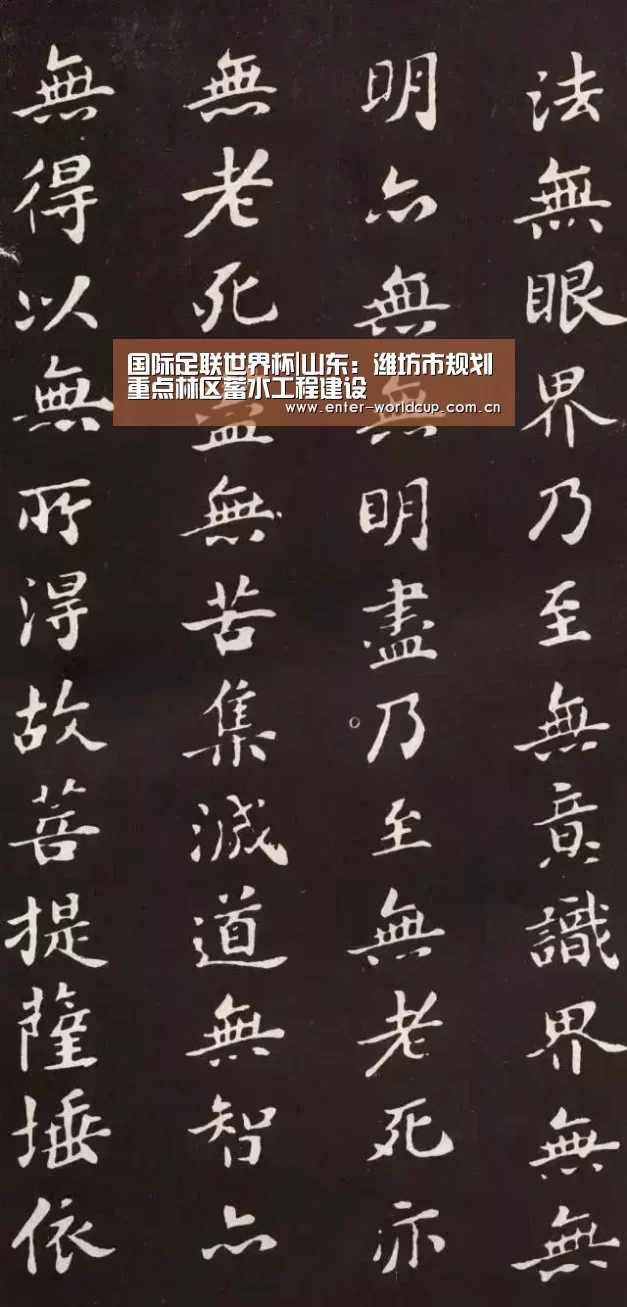 法無眼界乃至無意識界無無
明亦無無明盡乃至無老死亦
無老死盡無苦集滅道無智亦
無得以無所得故菩提薩埵依
国际足联世界杯|山东：潍坊市规划
重点林区蓄水工程建设
www.enter-worldcup.com.cn